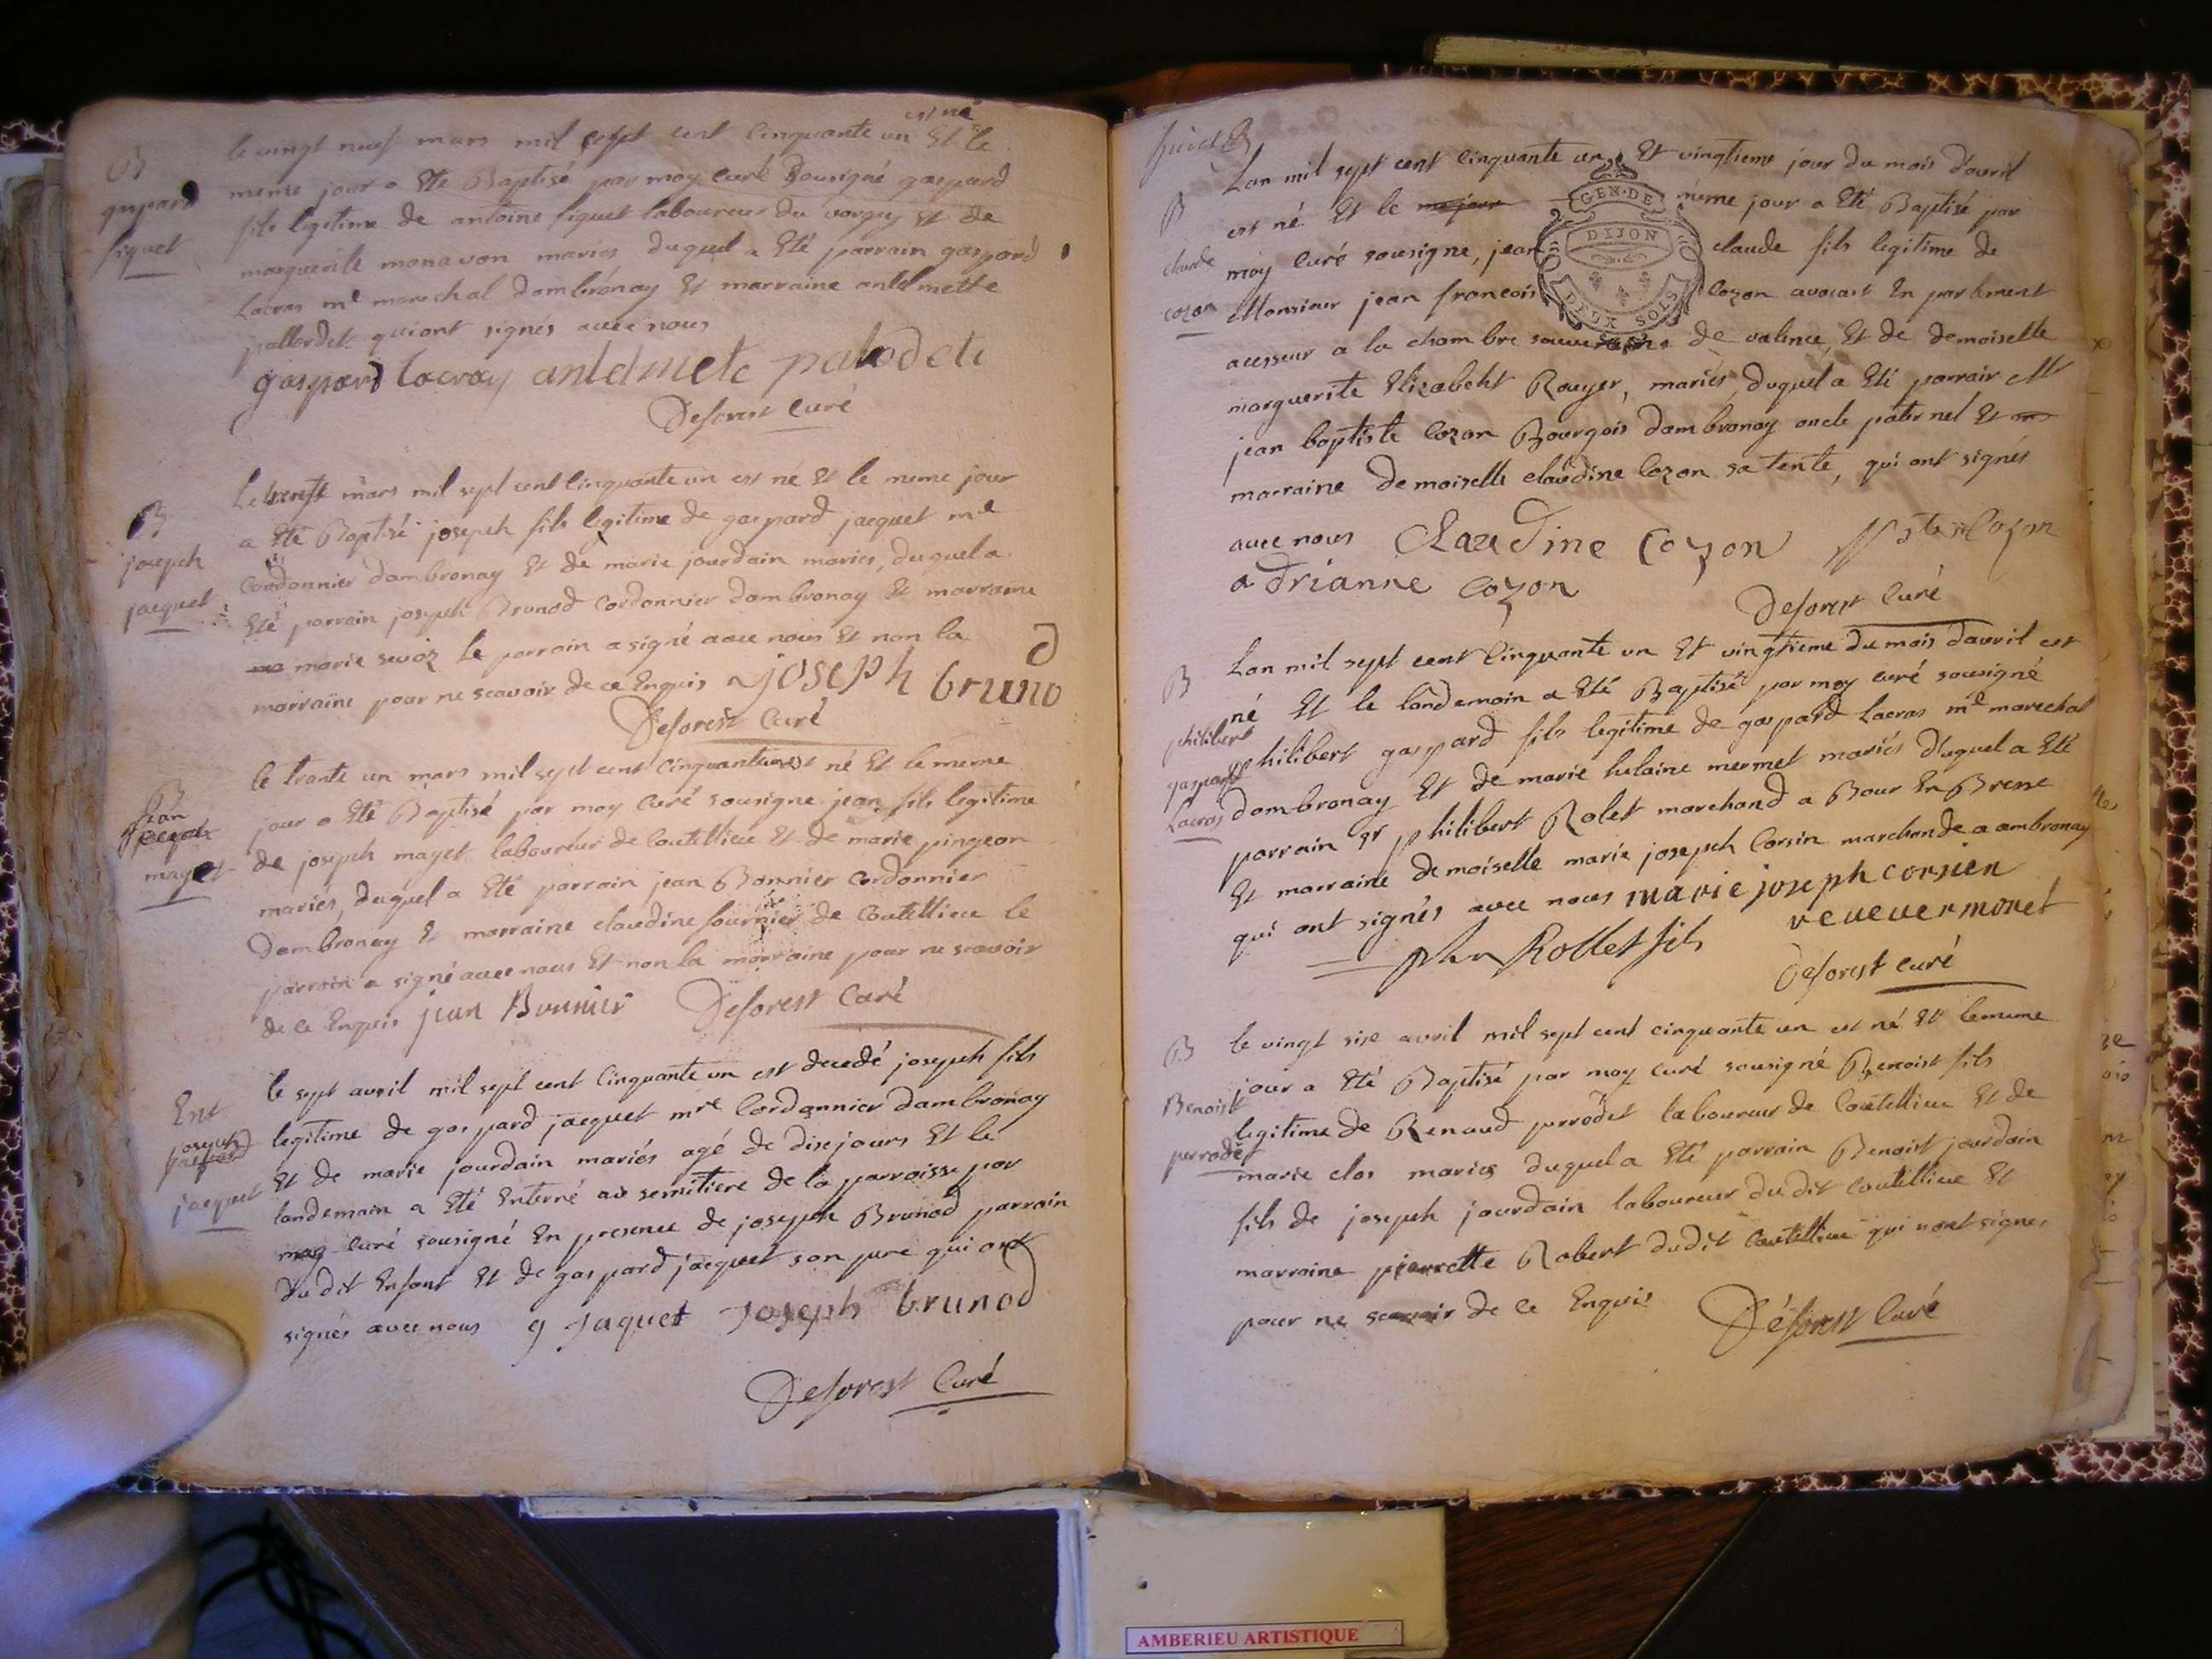 est né
le vingt neuf mars mil sept cent cinquante un Et le
B
meme jour a Eté Baptisé par moy curé sousigné gaspard
gaspard
fils legitime de antoine siguet laboureur du vorgey Et de
siguet
marguerite monavon mariés duquel a Eté parrain gaspard
Lacras me marechal dambronay Et marraine antelmette
pallordet qui ont signés avec nous
gaspard Lacray antelmete palodete
Deforest Curé
Le trente mars mil sept cent cinquante un est né Et le meme jour
B
a Eté Baptisé joseph fils legitime de gaspard jacquet me
joseph
Cordonnier dambronay Et de marie jourdain mariés, duquel a
jacquet
Eté parrain joseph Brunod Cordonnier dambronay Et marraine
marie Le parrain a signé avec nous Et non la
marraine pour ne scavoir de ce Enquis joseph brunod
Deforest Curé
le trante un mars mil sept cent cinquante un est né Et le meme
B
jour a Eté Baptisé par moy Curé sousigne jean fils legitime
jean
de joseph mayet laboureur de Coutellieu Et de marie pingeon
mayet
mariés, duquel a Eté parrain jean Bonnier Cordonnier
Dambronay Et marraine claudine fournier de Coutellieu le
parrain a signé avec nous Et non la marraine pour ne scavoir
de ce Enquis jean Bounier Deforest Curé
le sept avril mil sept cent Cinquante un est decedé joseph fils
Ent
legitime de gaspard jacquet mre Cordonnier dambronay
joseph
Et de marie jourdain mariés agé de dise jours Et le
jacquet
landemain a Eté Enterré au semitiere de la parroisse par
moy curé sousigné En presence de joseph Brunod parrain
du dit Enfant Et de gaspard jacquet son pere qui ont
signés avec nous g Jaquet Joseph brunod
Deforest Curé
Lan mil sept cent cinquante un Et vingtieme jour du mois davril
B
est né Et le meme jour a Eté Baptisé par
GEN·DE
DIJON
DEUX SOLS
claude
moy Curé sousigne, jean claude fils legitime de
cozon
Monsieur jean francois Cozon avocast En parlement
acesseur a la chambre souveraine de valence, Et de demoiselle
marguerite Elizabeht Rouyer, mariés, duquel a Eté parrain Mr
jean baptiste Cozon Bourgois dambronay oncle paternel Et
marraine Demoiselle claudine Cozon sa tente, qui ont signés
avec nous Claudine Cozon Cozon
adrianne Cozon
Deforest Curé
B
Lan mil sept cent Cinquante un Et vingtieme du mois davril est
né Et le landemain a Eté Baptisé par moy curé sousigné
philibert
philibert gaspard fils legitime de gaspard Lacras me marechal
gaspard
Lacras
dambronay Et de marie helaine mermet mariés duquel a Eté
parrain sr philibert Rolet marchand a Bour En Bresse
Et marraine demoiselle marie joseph Corsin marchande a ambronay
qui ont signés avec nous marie joseph corsien
Rollet fils
Deforest curé
B
le vingt sise avril mil sept cent cinquante un est né Et lememe
jour a Eté Baptisé par moy curé sousigné Benoist fils
Benoist
legitime de Renaud perrodet laboureur de Coutellieu Et de
perrodet
marie clos mariés duquel a Eté parrain Benoist jourdain
fils de joseph jourdain laboureur du dit Coutellieu Et
marraine pierrette Robert dudit Coutellieu qui nont signes
pour ne scavoir de ce Enquis
Déforest Curé
AMBERIEU ARTISTIQUE